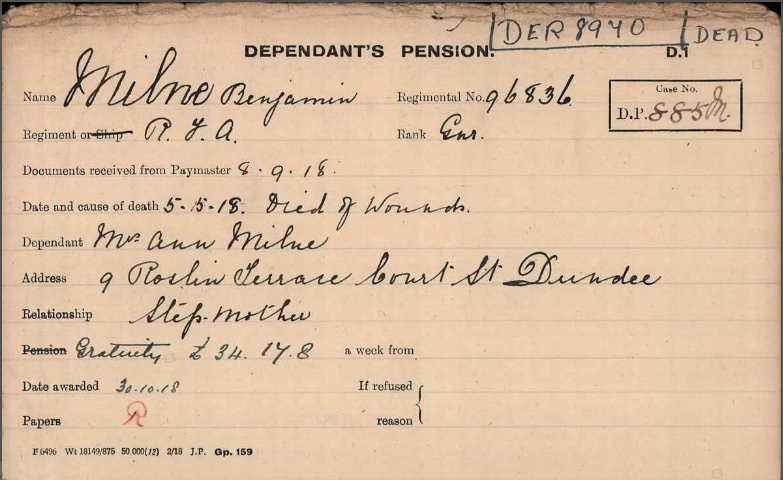 DER 8940 DEAD
DEPENDANT'S PENSION. D.1
Name Milne Benjamin Regimental No. 96836
Case No.
D.P. 885M.
Regiment or Ship R. F. A. Rank Gnr.
Documents received from Paymaster 8.9.18.
Date and cause of death 5.5.18. Died of Wounds.
Dependant Mrs Ann Milne
Address 9 Roslin Terrace Court St Dundee
Relationship Step-mother
Pension Gratuity £34.17.8 a week from
Date awarded 30.10.18 If refused
Papers R reason
F 6496 Wt 18149/875 50,000(12) 2/18 J.P. Gp. 159